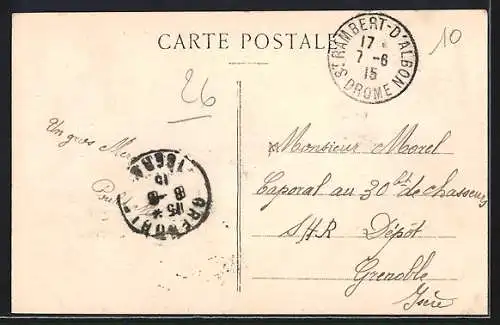 CARTE POSTALE
ST RAMBERT-D'ALBON
17
7 -6
15
DROME
10
26
Un gros
GRENOBLE
ISERE
Monsieur Morel
Caporal au 30 bt de chasseurs
SHR Dépôt
Grenoble
Isère